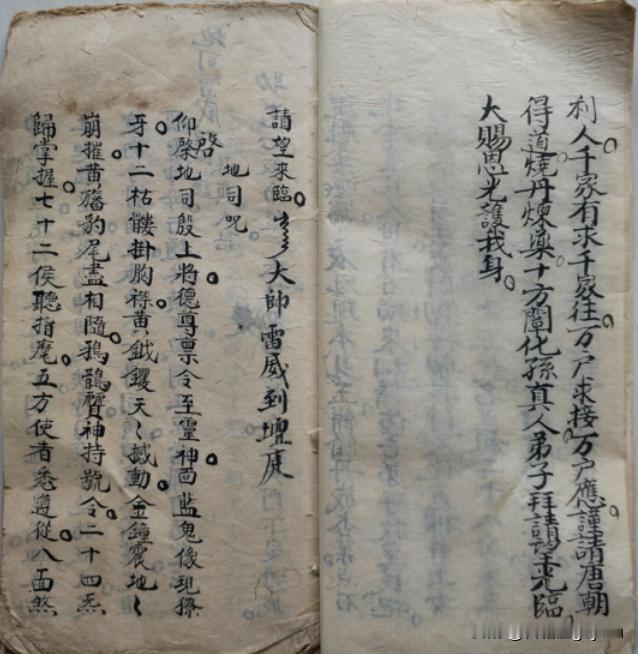 利人千家有求千家往万户求接万户應謹請唐朝
得道燒丹煉藥十方闡化孫真人弟子拜請望光臨
大賜恩光護我身
請望來臨 大帥雷威到壇庭
地司咒
仰啓地司殷上將德尊禀令至靈神面藍鬼像現獠
牙十二枯髏掛胸襟黄鉞鑊天〻撼動金鐘震地〻
崩摧黄旛豹尾盡相隨鴉鵲賢神持號令二十四炁
歸掌握七十二侯聽指麾五方使者悉遵從八面煞